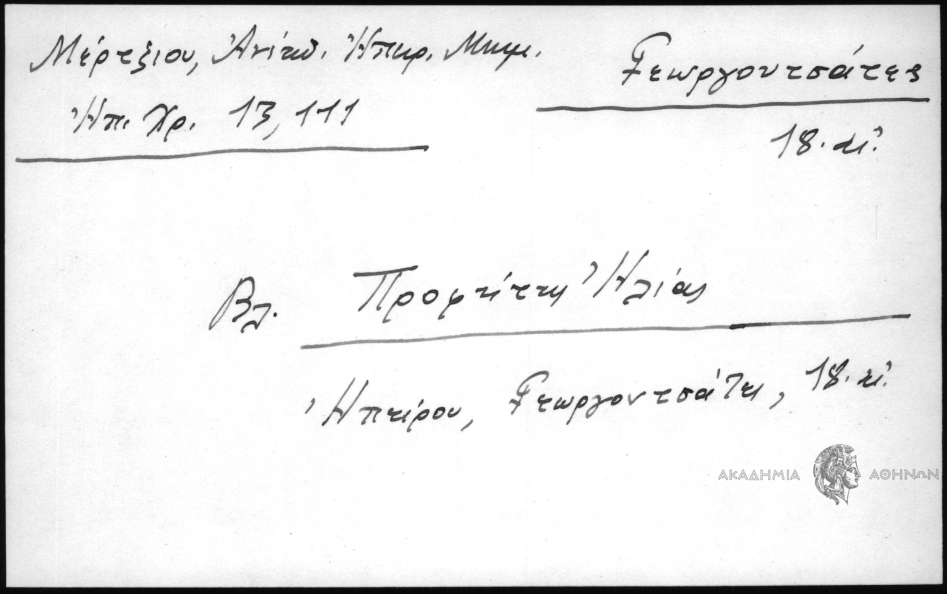 Μέρτζιου, Ἀνέκδ. Ἠπειρ. Μνημ.
Ἠπ. Χρ. 13, 111
Γεωργουτσάτες
18. αἰ.
Βλ. Προφήτης Ἠλίας
Ἠπείρου, Γεωργουτσάτες, 18. αἰ.
ΑΚΑΔΗΜΙΑ ΑΘΗΝΩΝ